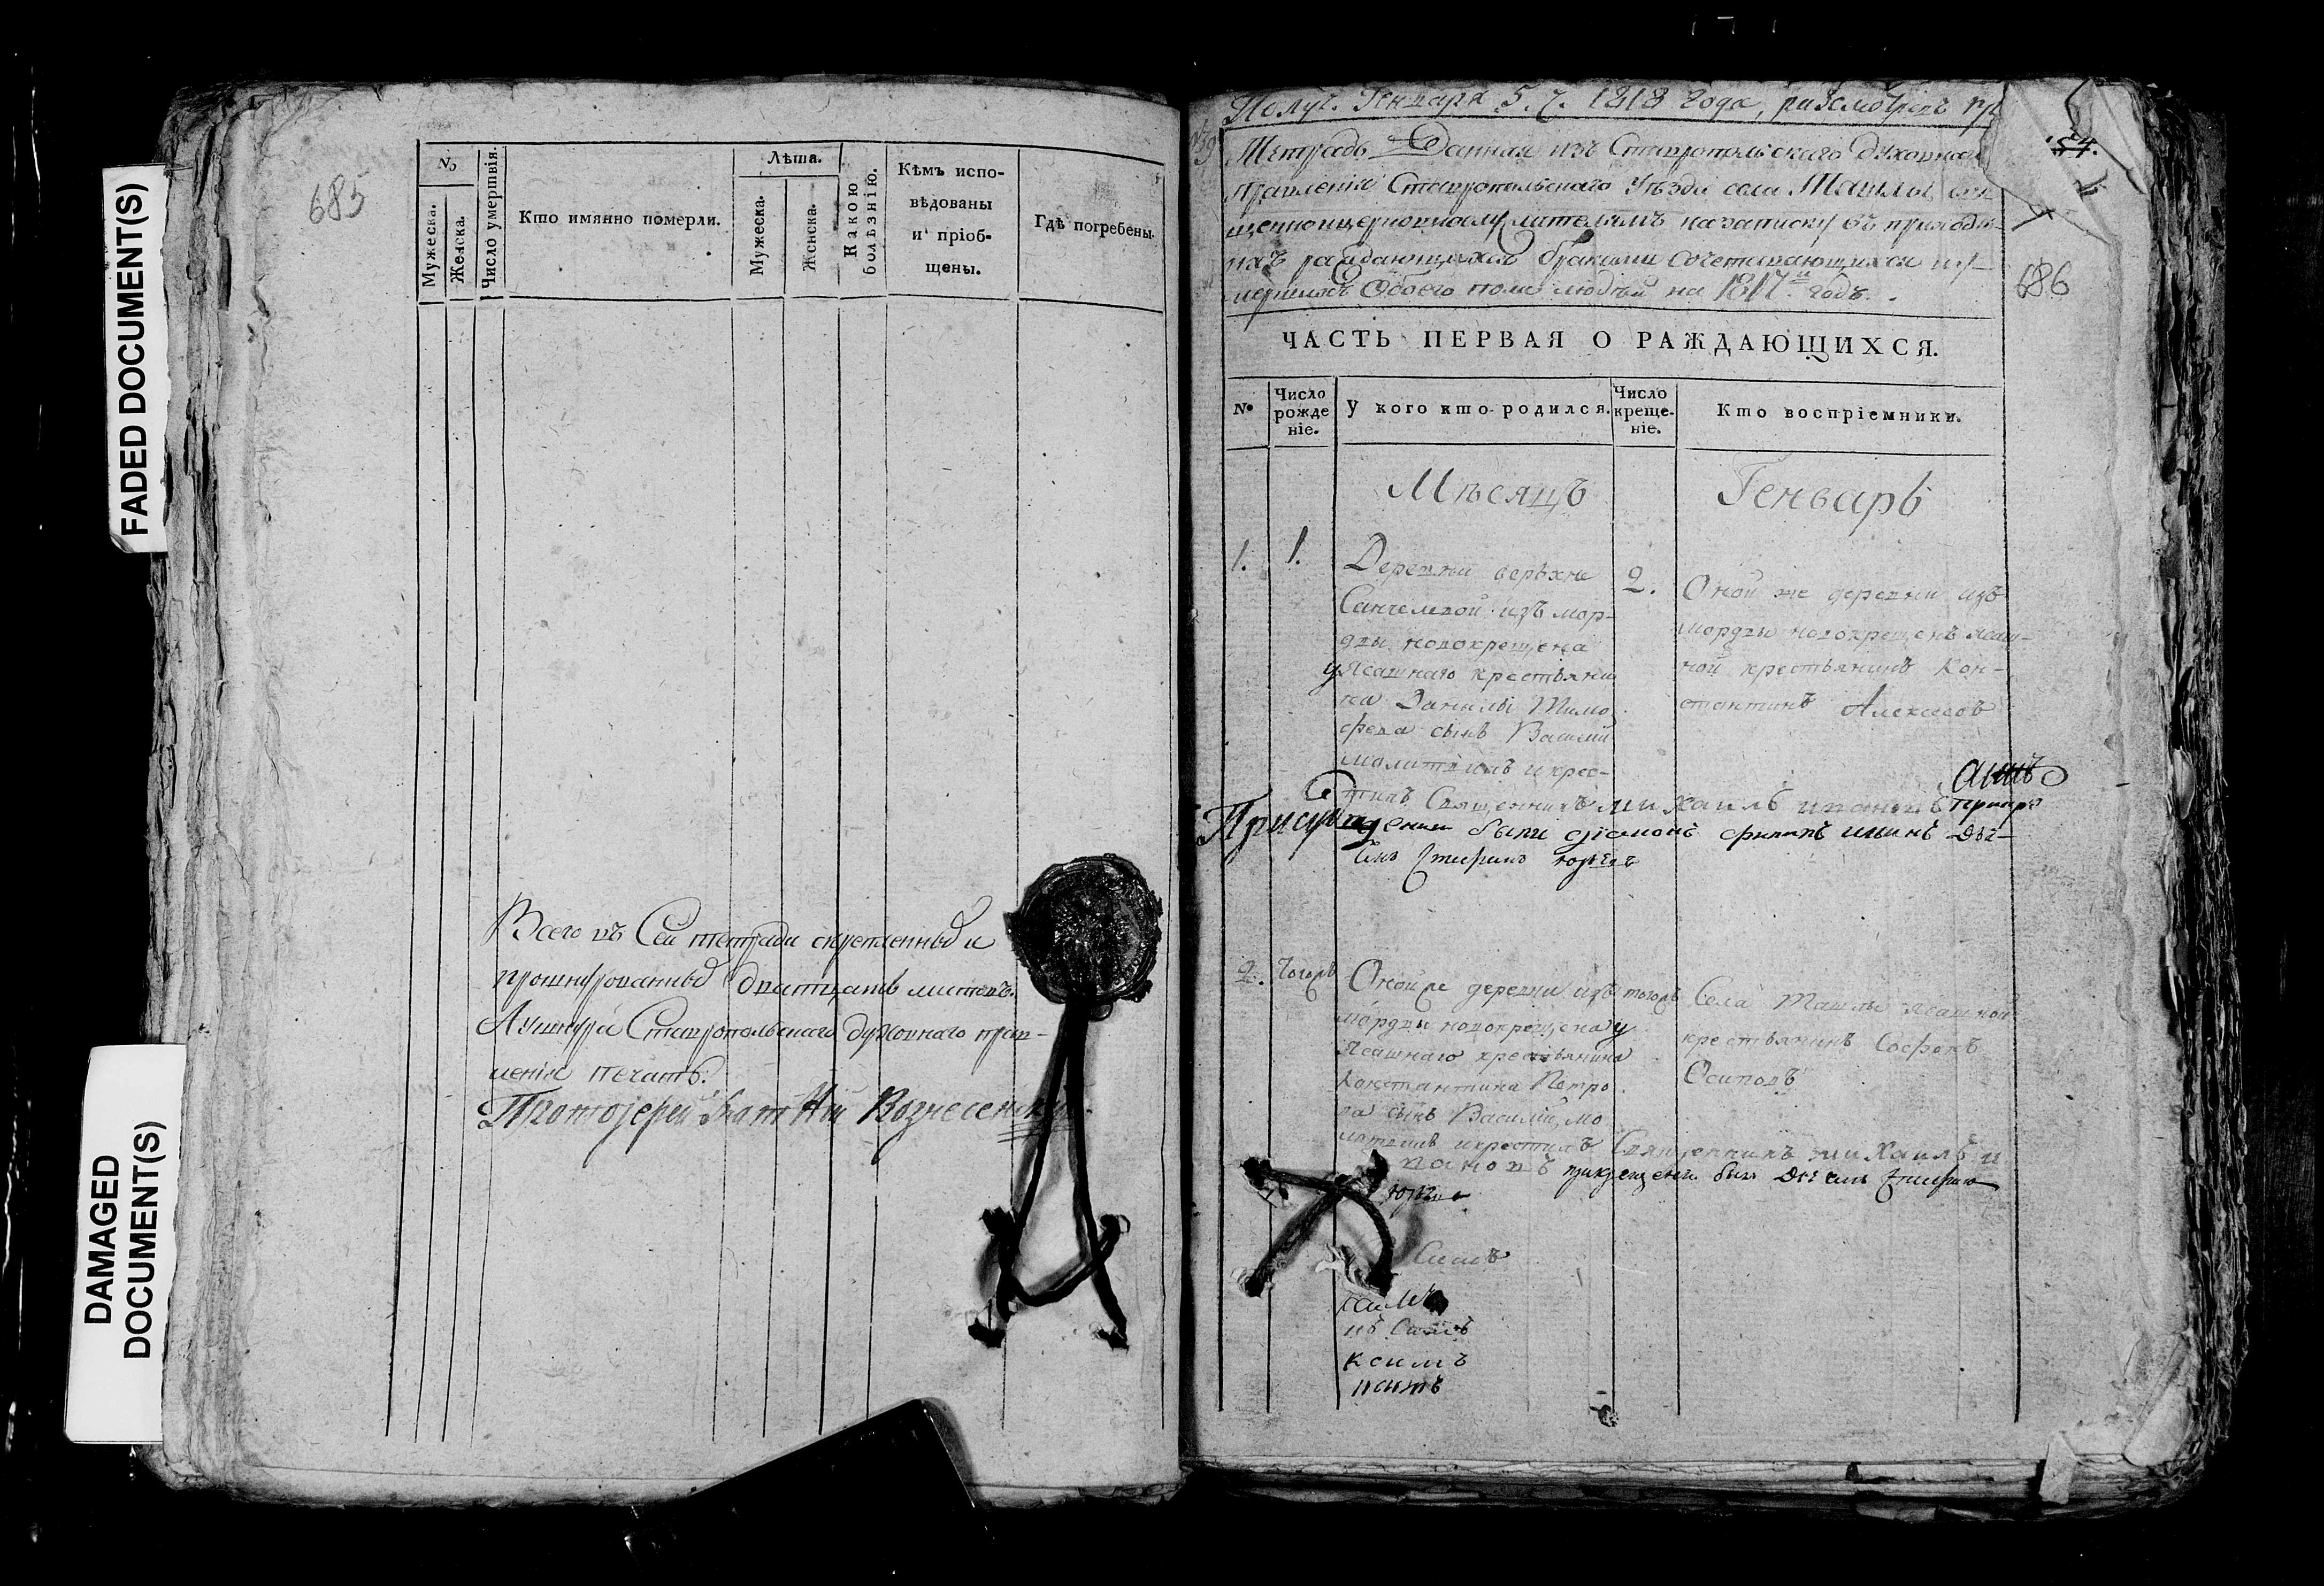 FADED DOCUMENT(S)
DAMAGED
DOCUMENT(S)
685
№
Мужеска.
Женска.
Число умертвія.
Кто имянно померли.
Лѣта.
Мужеска.
Женска.
Какою
болѣзнію.
Кѣмъ испо-
вѣдованы
и пріоб-
щены.
Гдѣ погребены.
Всего въ Сей тетради скрепленныхъ и
прошнурованныхъ дватцать листовъ.
Ставропольскаго духовнаго прав-
ленія печать.
Протоіерей Вознесенскій
Получ. Генваря 5. ч. 1818 года, разсмотренъ
Тетрадь Данная изъ Ставропольскаго духовнаго
правленія Ставропольскаго уѣзда села Ташлы
щенноцерковнослужителямъ на записку въ приходѣ
ихъ раждающихся браками сочетавающихся и у-
мершихъ обоего пола людей на 1817й годъ.
54.
686
ЧАСТЬ ПЕРВАЯ О РАЖДАЮЩИХСЯ.
№
Число
рожде
ніе.
У кого кто родился.
Число
креще-
ніе.
Кто воспріемники.
Мѣсяцъ Генварь
1. 1.
Деревни верхне
Санчелевой изъ мор-
двы новокрещена
у Ясашнаго крестьяни
на Данилы Тимо
феева сынъ Василій
молитвилъ и крес-
тилъ Священникъ михаилъ ивановъ
При сем крещении были діаконъ филипъ ильинъ дья-
2.
Оной же деревни изъ
мордвы новокрещенъ ясаш-
ной крестьянинъ Кон-
стантинъ Алексеевъ
2. тогожъ
Оной же деревни изъ
мордвы новокрещена у
Ясашнаго крестьянина
Константина Петро
ва сынъ Василій, мо
литвилъ и крестилъ Священникъ михаилъ и
вановъ при крещении былъ
тогожъ
Села Ташлы ясашной
крестьянинъ
Осиповъ